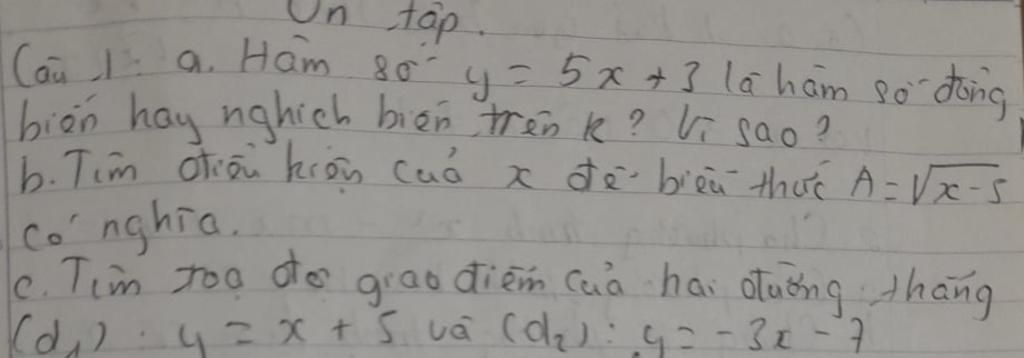 Ôn tập.
Câu 1: a. Hàm số y = 5x + 3 là hàm số đồng
biến hay nghịch biến trên R? Vì sao?
b. Tìm điều kiện của x để biểu thức A = √x-5
có nghĩa.
c. Tìm toạ độ giao điểm của hai đường thẳng
(d₁): y = x + 5 và (d₂): y = -3x - 7